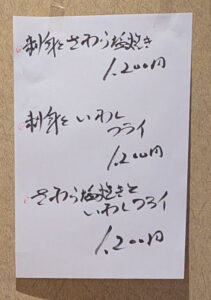 刺身とさわら塩焼き
1,200円
刺身といわし
フライ
1,200円
さわら塩焼きと
いわしフライ
1,200円